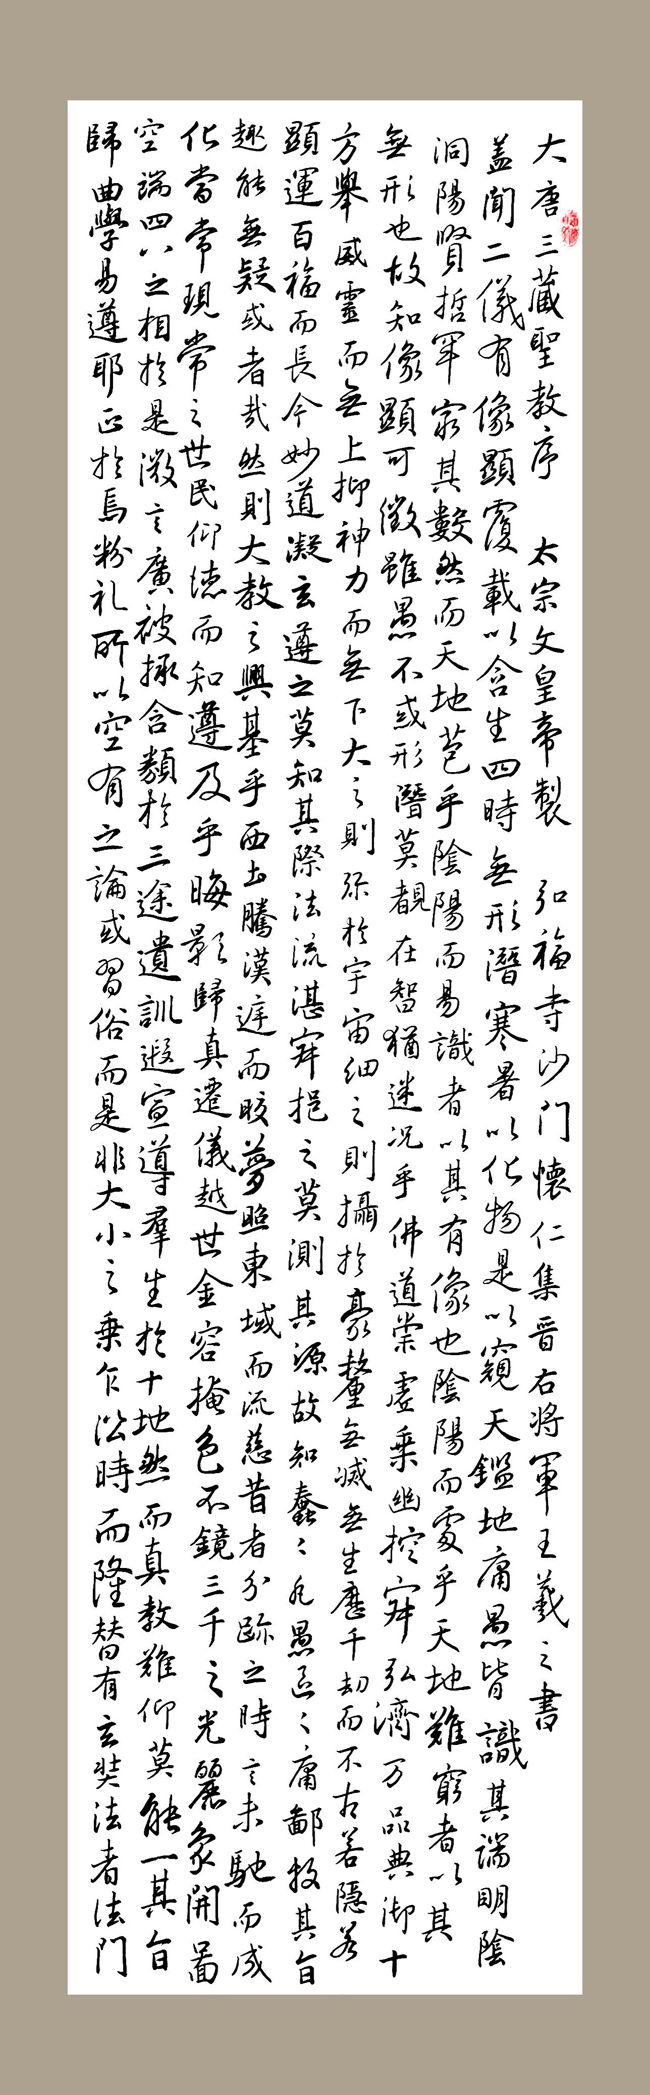 大唐三藏聖教序 太宗文皇帝製 弘福寺沙門懷仁集晉右将軍王羲之書
盖聞二儀有像顯覆載以含生四時無形潛寒暑以化物是以窺天鑑地庸愚皆識其端明陰
洞陽賢哲罕窮其數然而天地苞乎陰陽而易識者以其有像也陰陽處乎天地而難窮者以其
無形也故知像顯可徵雖愚不惑形潛莫覩在智猶迷况乎佛道崇虛乗幽控寂弘濟万品典御十
方舉威靈而無上抑神力而無下大之則弥於宇宙細之則攝於豪釐無滅無生歷千劫而不古若隱若
顯運百福而長今妙道凝玄遵之莫知其際法流湛寂挹之莫測其源故知蠢〻凡愚區〻庸鄙投其旨
趣能無疑或者哉然則大教之興基乎西土騰漢庭而皎夢照東域而流慈昔者分跡之時言未馳而成
化當常現常之世民仰德而知遵及乎晦影歸真遷儀越世金容掩色不鏡三千之光麗象開圖
空端四八之相於是微言廣被拯含類於三途遺訓遐宣導羣生於十地然而真教難仰莫能一其旨
歸曲學易遵耶正於焉紛糺所以空有之論或習俗而是非大小之乗乍㳂時而隆替有玄奘法者法門